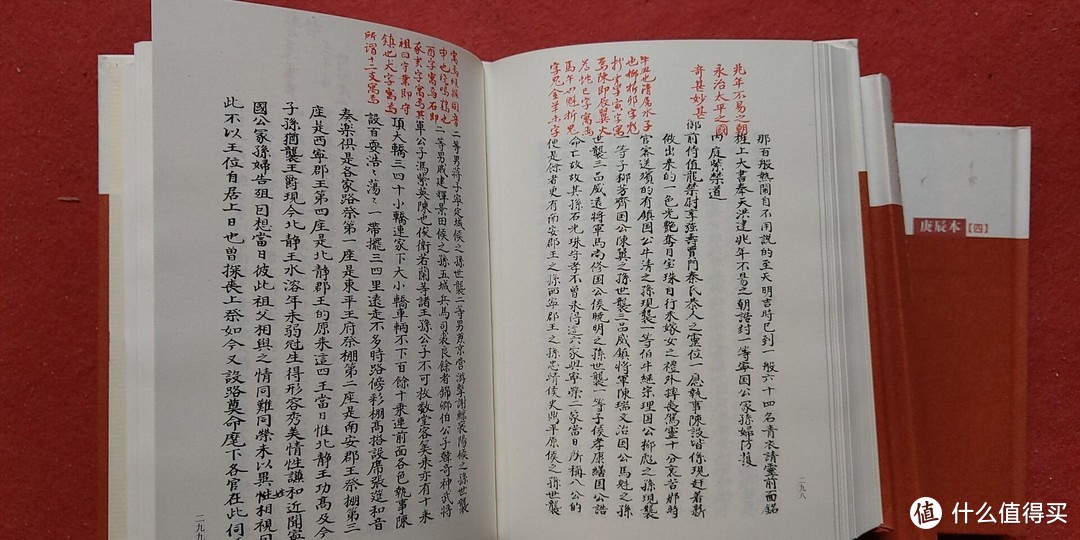 兆年不易之朝
永治太平之國
奇甚妙甚
那百般熱鬧自不用說的至天明吉時已到一般六十四名青衣請靈前面銘
旌上大書奉天洪建兆年不易之朝誥封一等寧国公冢孫婦防護
內庭紫禁道
御前侍值龍禁尉享强壽賈門秦氏恭人之靈位一應執事陳設皆係現赶着新
做出來的一色光艷奪目宝珠自行未嫁女之禮外摔喪駕靈十分哀苦那時
官客送殯的有鎮国公牛清之孫現襲一等伯牛継宗理国公柳彪之孫現襲
一等子柳芳齊国公陳翼之孫世襲三品威鎮將軍陳瑞文治国公馬魁之孫
世襲三品威遠將軍馬尚修国公侯曉明之孫世襲一等子侯孝康繕国公誥
命亡故故其孫石光珠守孝不曾來得這六家與寧榮二家當日所稱八公的
便是餘者更有南安郡王之孫西寧郡王之孫忠靖侯史鼎平原侯之孫世襲
牛丑也清属水子
也柳拆卯字彪
拆虎字寅字寓
焉陳即辰翼火
為蛇巳字寓焉
馬午也魁拆鬼
字鬼金羊未字
二九八
寓焉侯猴同音
申也曉鳴鷄也
酉字寓焉石即
豕亥字寓焉其
祖曰守業即守
鎮也犬字寓焉
所謂十二支寓焉
二等男蔣子寧定城侯之孫世襲二等男兼京營游擊謝鯨襄陽侯之孫世襲
二等男戚建輝景田侯之孫五城兵馬司裘良餘者錦鄉伯公子韓奇神武將
軍公子馮紫英陳也俊衛若蘭等諸王孫公子不可枚數堂客算來亦有十來
頂大轎三四十小轎連家下大小轎車輛不下百餘十乘連前面各色執事陳
設百耍浩〻蕩〻一帶擺三四里遠走不多時路傍彩棚高搭設席張筵和音
奏樂俱是各家路祭第一座是東平王府祭棚第二座是南安郡王祭棚第三
座是西寧郡王第四座是北静郡王的原來這四王當日惟北静王功高及今
子孫猶襲王爵現今北静王水溶年未弱冠生得形容秀美情性謙和近聞寧
國公冢孫婦告殂因想當日彼此祖父相與之情同難同榮未以異姓相視因
此不以王位自居上日也曾探喪上祭如今又設路奠命麾下各官在此伺
二九九
庚辰本【四】
值 什么值得买